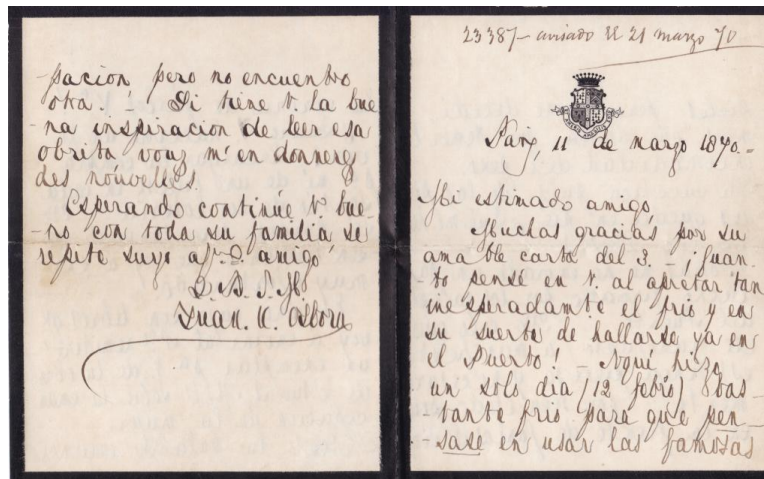 -pacion pero no encuentro
otra! Si tiene V. la bue
na inspiracion de leer esa
obrita vous m'en donnerez
des nouvelles.
Esperando continúe V. bue-
-no con toda su familia se
repite suyo af.mo amigo
Q B S M
Juan. N. Osborne
23387- avisado el 21 marzo 90
Paris, 11 de marzo 1890.-
Mi estimado amigo,
Muchas gracias por su
amable carta del 3 - ¡Cuan-
to pensé en V. al apretar tan
inesperadamte el frio y en
su suerte de hallarse ya en
el Puerto! Aquí hizo
un solo dia (12 febro) bas-
tante frio para que pen-
-sase en usar las famosas